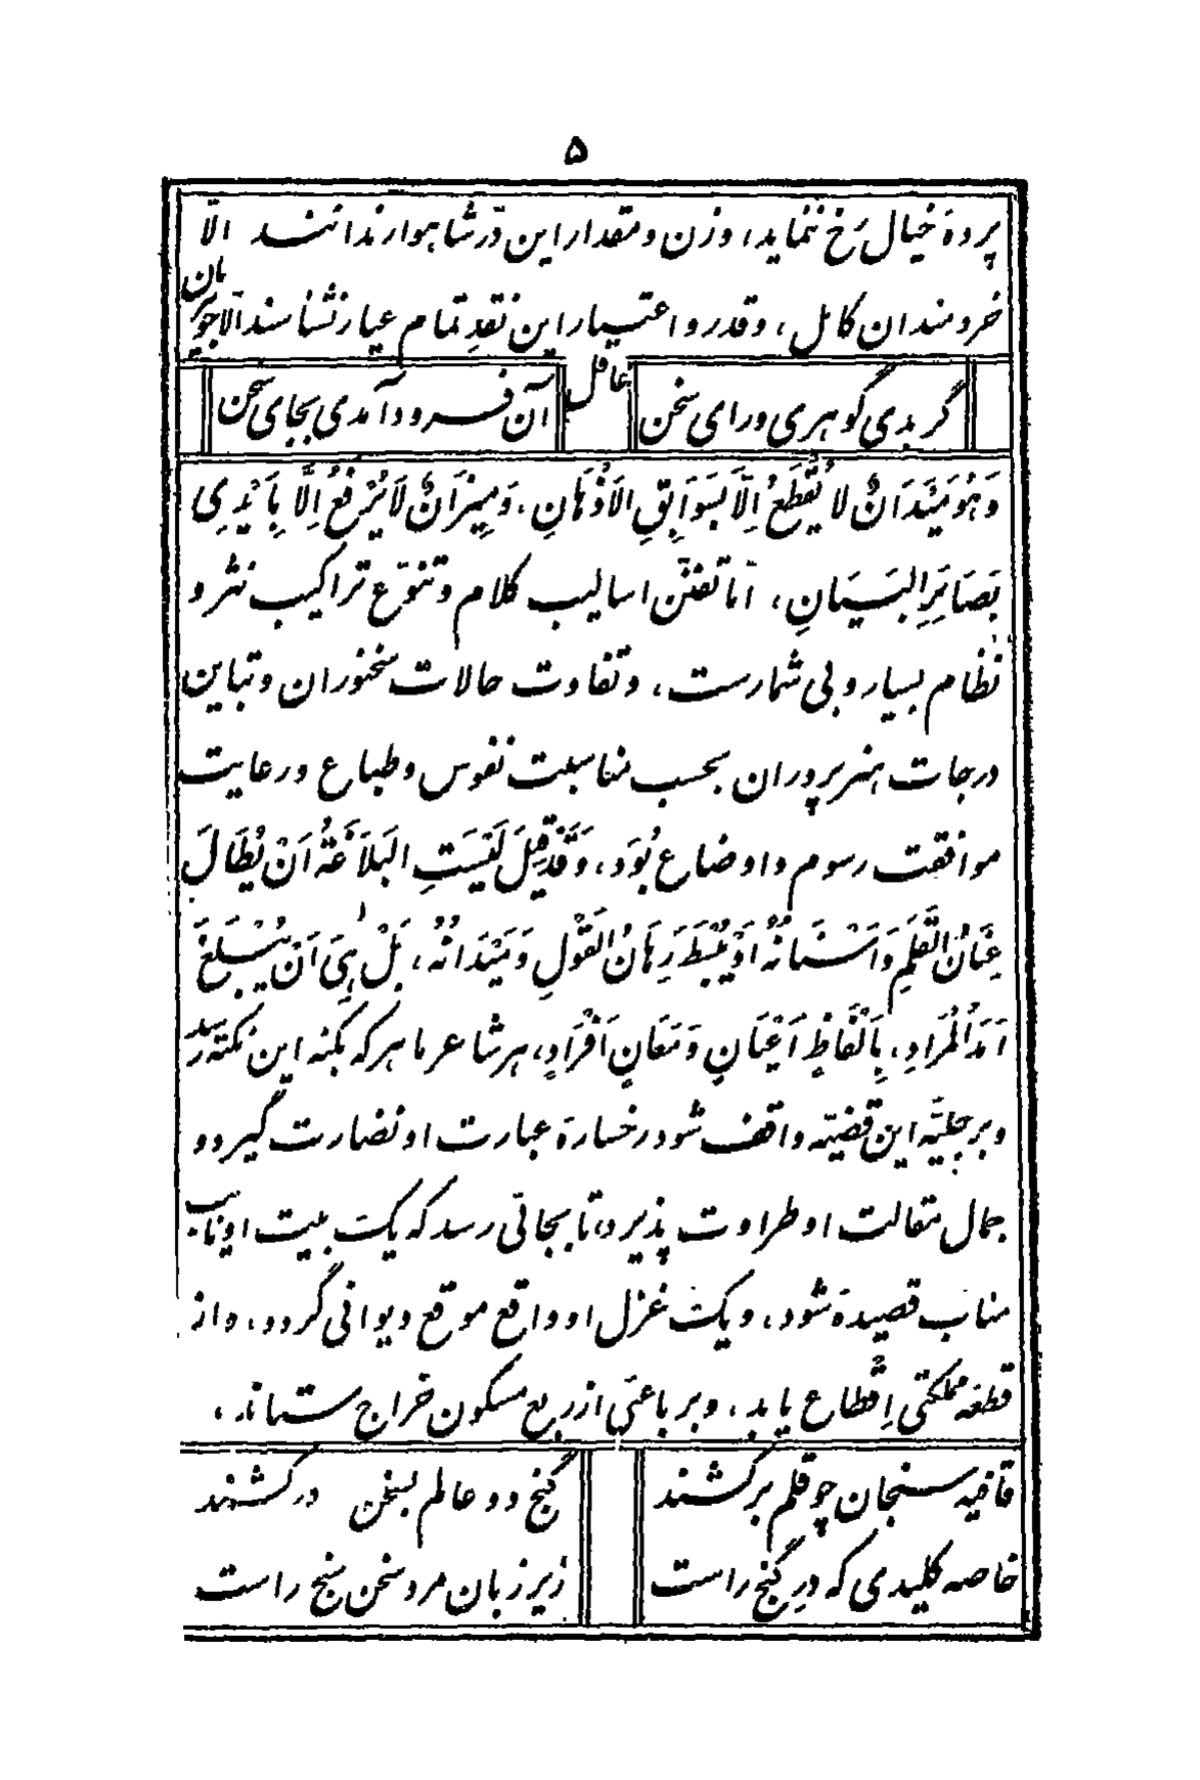 ۵
پردهٔ خیال رخ ننماید، وزن و مقدار این دّر شاهوار ندانند الّا
خردمندان کامل، و قدر و اعتبار این نقدِ تمام عیار نشناسند الّا جوهریان
عاقل
گر بدی گوهری ورای سخن
آن فرود آمدی بجای سخن
وَهُوَ مَیْدَانٌ لا یُقْطَعُ اِلّاَ بِسَوَابِقِ الاَذْهَانِ، وَمِیزَانٌ لَا یُرْفَعُ اِلَّا بِاَیْدِی
بَصَائِرِ البَیَانِ، امّا تفنّن اسالیب کلام و تنوّع تراکیب نثر و
نظام بسیار و بی شمارست، و تفاوت حالات سخنوران و تباین
درجات هنرپروران بحسب مناسبت نفوس و طباع و رعایت
موافقت رسوم و اوضاع بُوَد، وَقَدْ قِیلَ لَیْسَتِ البَلَاغَةُ اَنْ یُطَالَ
عِنَانُ القَلَمِ وَاَسْنَانُهُ اَوْ یُبْسَطَ رِهَانُ القَوْلِ وَمَیْدَانُهُ، بَلْ هِیَ اَنْ یَبْلَغَ
اَمَدَ الْمُرَادِ، بِاَلْفَاظٍ اَعْیَانٍ وَمَعَانٍ اَفْرَادٍ، هر شاعر ماهر که بکنه این نکته رسد
و بر جلیّه این قضیّه واقف شود رخسارهٔ عبارت او نضارت گیرد و
جمال مقالت او طراوت پذیرد، تا بجائی رسد که یک بیت او نایب
مناب قصیدهٔ شود، و یک غزل او واقع موقع دیوانی گردد، و از
قطعه مملکتی اِقطاع یابد، و برباعئی از ربع مسکون خراج ستاند،
قافیه سنجان چو قلم برکشند
گنج دو عالم بسخن درکشند
خاصه کلیدی که درِ گنج راست
زیر زبان مرد سخن سنج راست